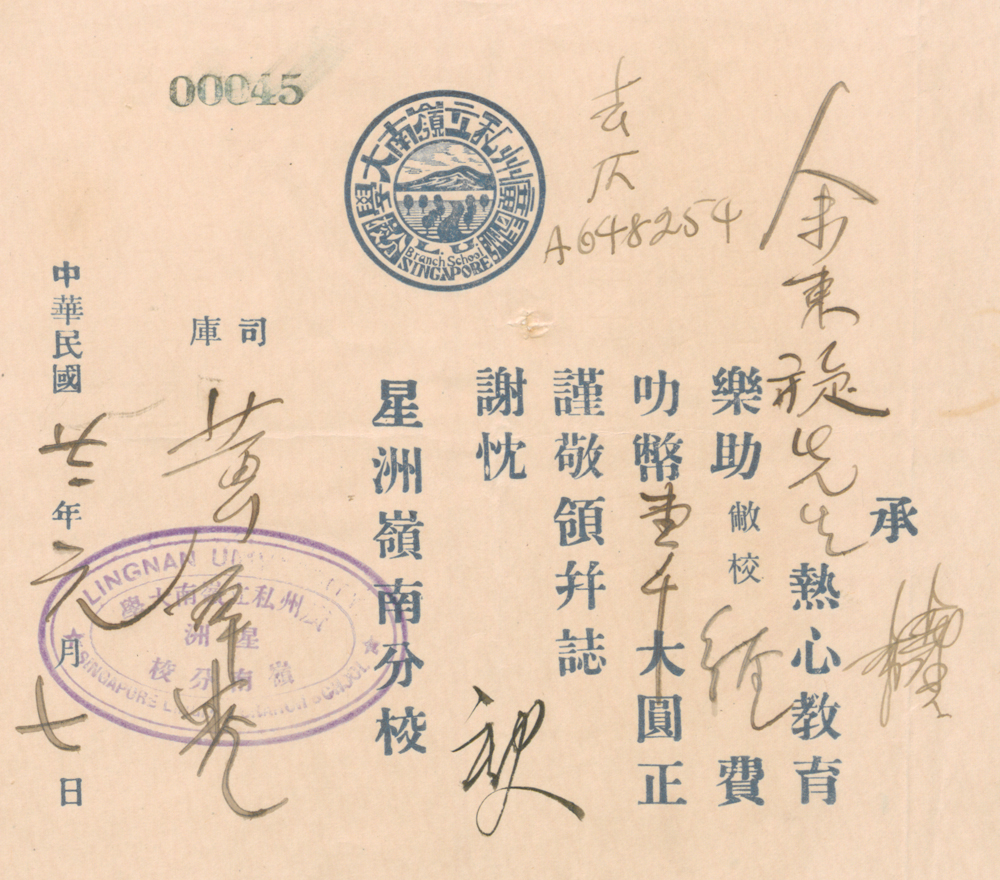 00045
廣州私立嶺南大學
星洲分校
L. U.
Branch School
SINGAPORE
去仄
A648254
承
余東旋先生熱心教育
樂助敝校經費
叻幣壹千大圓正
謹敬領幷誌
謝忱
星洲嶺南分校
司庫
黃
中華民國廿二年元月七日
LINGNAN UNIVERSITY
州私立嶺南大學
星洲
嶺南分校
SINGAPORE LINGNAN BRANCH SCHOOL